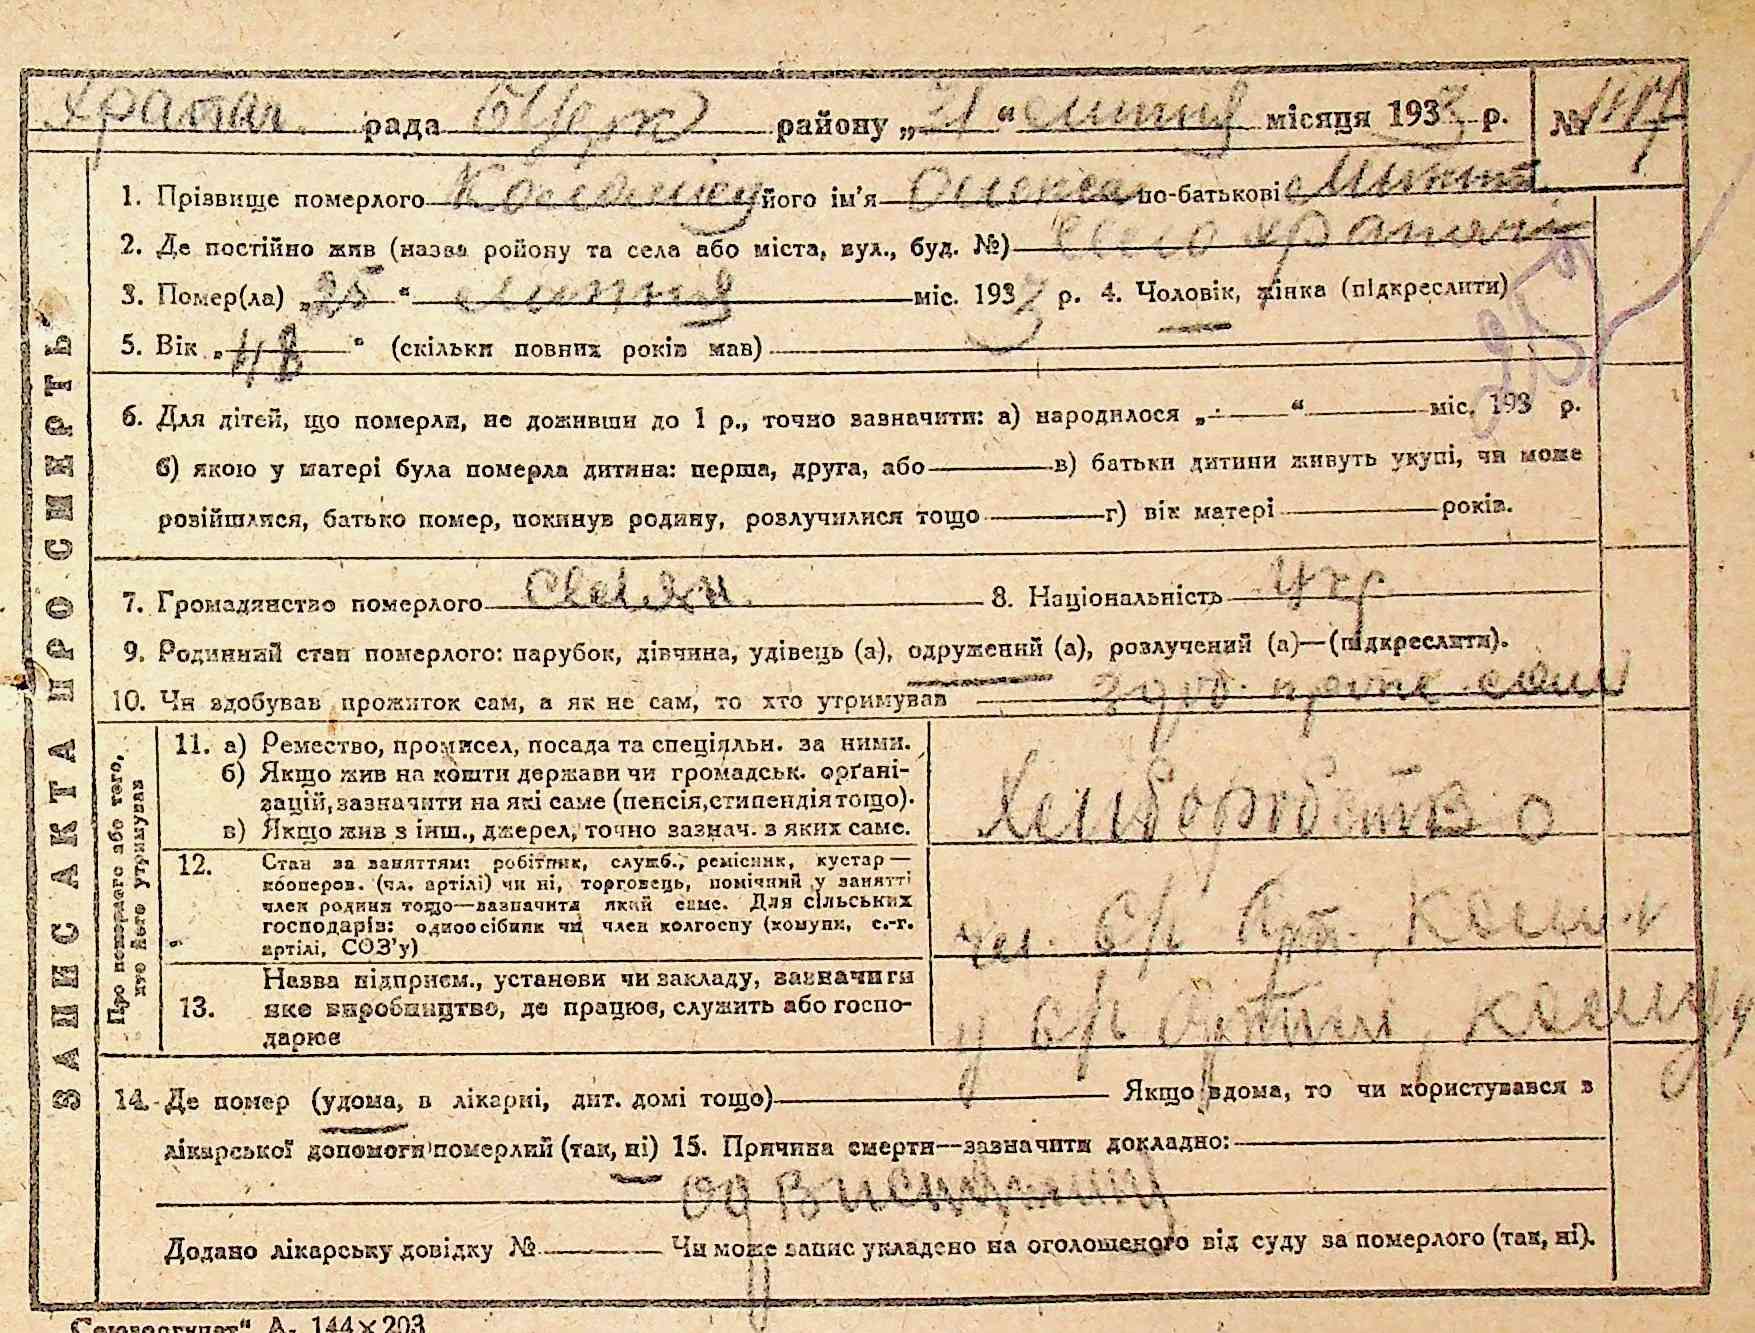 Храпач. рада БЦерк району „31“ липня місяця 1933 р. №
1. Прізвище померлого його ім'я Олекса по-батькові
2. Де постійно жив (назва ройону та села або міста, вул., буд. №) село Храпачі
3. Помер(ла) „25“ липня міс. 1933 р. 4. Чоловік, жінка (підкреслити)
5. Вік „48“ (скільки повних років мав)
6. Для дітей, що померли, не доживши до 1 р., точно зазначити: а) народилося „ “ міс. 193 р.
б) якою у матері була померла дитина: перша, друга, або в) батьки дитини живуть укупі, чи може
розійшлися, батько помер, покинув родину, розлучилися тощо г) вік матері років.
7. Громадянство померлого селян. 8. Національність укр
9. Родинний стан померлого: парубок, дівчина, удівець (а), одружений (а), розлучений (а)—(підкреслити).
10. Чи здобував прожиток сам, а як не сам, то хто утримував здоб. прож. сам
ЗАПИС АКТА ПРО СМЕРТЬ
Про померлого або того, хто його утримував
11. а) Ремество, промисел, посада та спеціяльн. за ними.
б) Якщо жив на кошти держави чи громадськ. орґані-
зацій, зазначити на які саме (пенсія, стипендія тощо).
в) Якщо жив з інш., джерел, точно зазнач. з яких саме.
Хліборобство
12. Стан за заняттям: робітник, служб., ремісник, кустар—
кооперов. (чл. артілі) чи ні, торговець, помічний у занятті
член родини тощо—зазначити який саме. Для сільських
господарів: одноосібник чи член колгоспу (комуни, с.-г.
артілі, СОЗ'у)
чл. с/г арт.,
13. Назва підприєм., установи чи закладу, зазначити
яке виробництво, де працює, служить або госпо-
дарює
у с/г артілі,
14. Де помер (удома, в лікарні, дит. домі тощо) Якщо вдома, то чи користувався з
лікарської допомоги померлий (так, ні) 15. Причина смерти—зазначити докладно:
од
Додано лікарську довідку № Чи може запис укладено на оголошеного від суду за померлого (так, ні).
А. 144×203